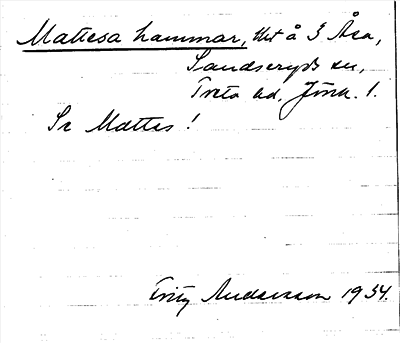 Matesa hammar, tht å 3 Åsa,
Sandseryds sn,
Tveta hd, Jönk. l.
Se Mattes!
Fritz Andersson 1934.